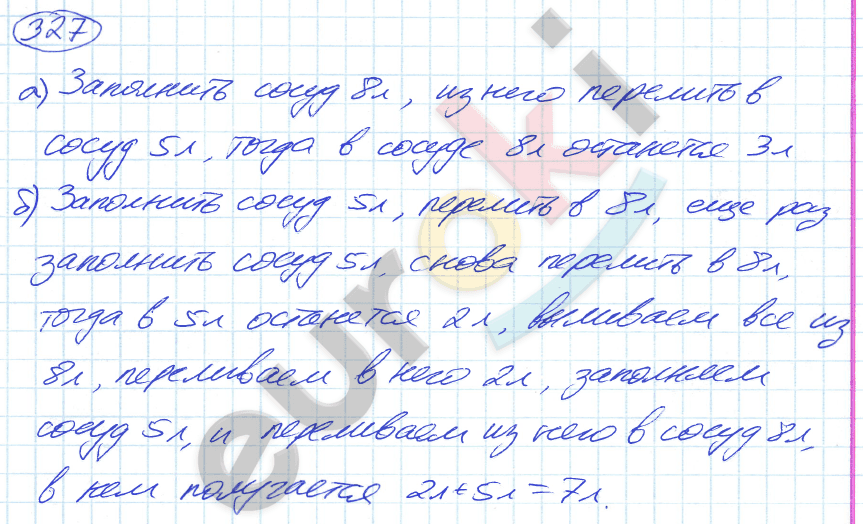 327
а) Заполнить сосуд 8л, из него перелить в
сосуд 5л, тогда в сосуде 8л останется 3л
б) Заполнить сосуд 5л, перелить в 8л, еще раз
заполнить сосуд 5л, снова перелить в 8л,
тогда в 5л останется 2л, выливаем все из
8л, переливаем в него 2л, заполняем
сосуд 5л, и переливаем из него в сосуд 8л,
в нем получается 2л+5л=7л.
euroki